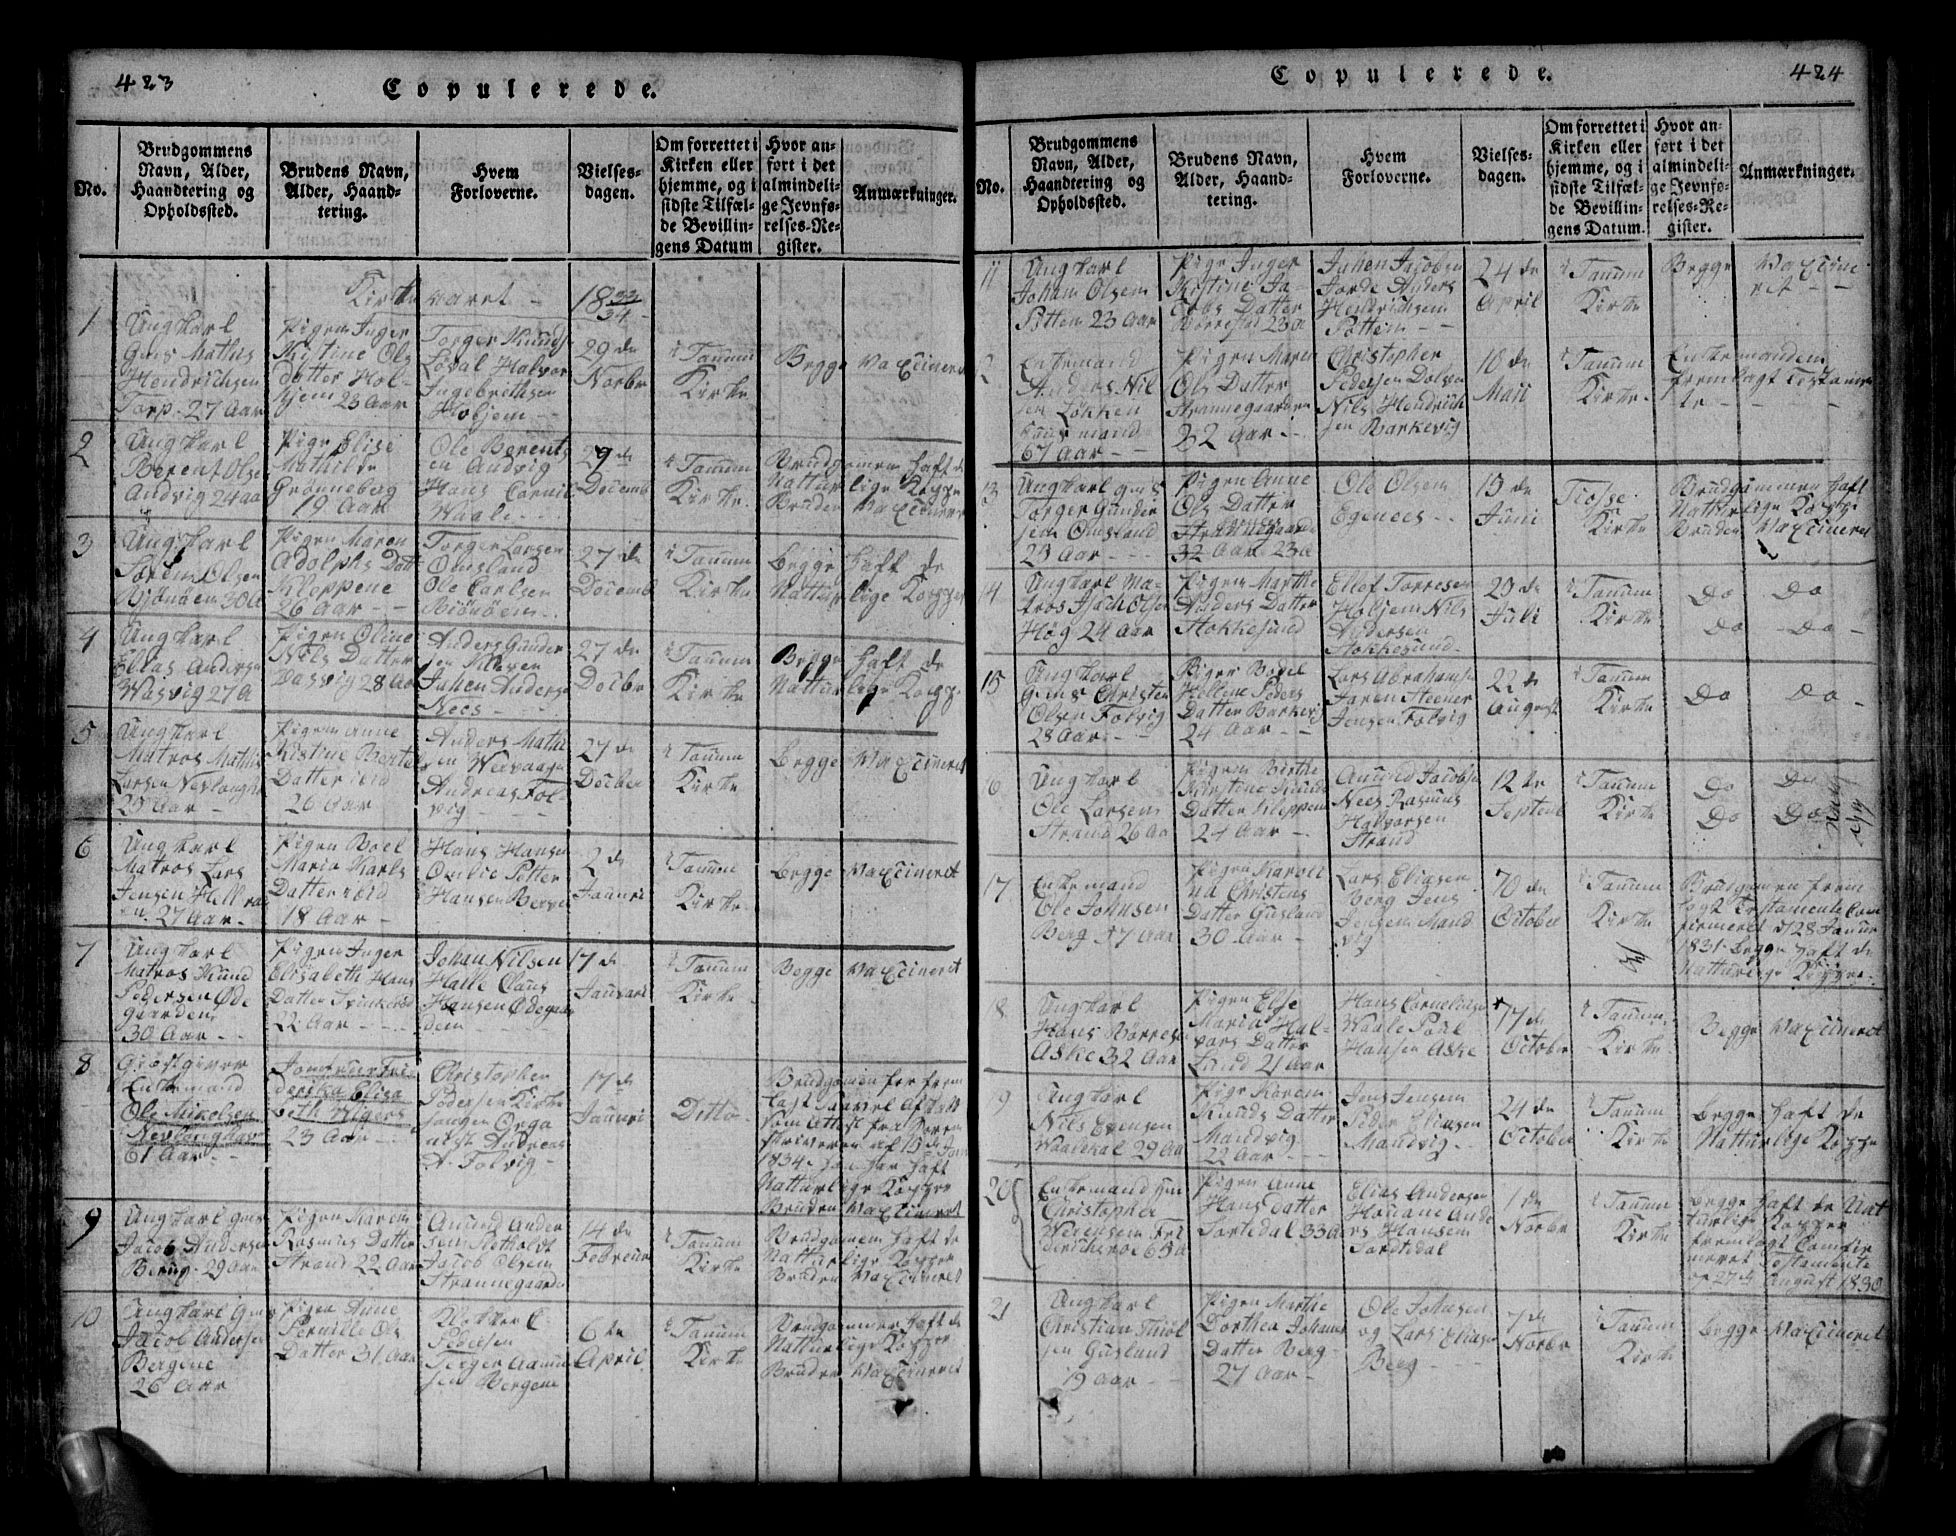 423
Copulerede.
No.
Brudgommens Navn, Alder, Haandtering og Opholdssted.
Brudens Navn, Alder, Haandtering.
Hvem Forloverne.
Vielsesdagen.
Om forrettet i Kirken eller hjemme, og i sidste Tilfælde Bevillingens Datum
Hvor anført i det almindelige Jevnførelses-Register.
Anmærkninger.
Kirke aaret - 18 33/34 -
1
Ungkarl
Gms Mathis
Hendrichsen
Torp. 27 Aar
Pigen Inger
Kistine Ols
datter Hol-
hjem 23 Aar
Torger Knuds
Halvor
Ingebrethsen
Holhjem
29 de
Novbr
i Tanum
Kirke
Begge
Vaxcineret
2
Ungkarl
Berent Olse
Andvig 24 aa
Pige Elise
Mathilde
Grønneberg
19 Aar
Ole Berents
en Andvig
Hans Cornil
Waale
29 de
Decemb
i Tanum
Kirke.
Brudgomen haft de
Naturlige Kopper
Bruden Vaxcineret
3
Ungkarl
Søren Olsen
Bjønøen 30 A
Pigen Maren
Adolphs Datt
Kleppene
26 Aar
Torger Larsen
Omsland
Ole Carlsen
Biönöen
27 de
Decemb
i Tanum
Kirke
Begge haft de
Natturlige Kopper
4
Ungkarl
Elias Andersen
Wasvig 27 A
Pigen Oline
Nils Datter
Vasvig 28 Aar
Anders Gunder
sen
Juhen Anders
Nees
27 de
Decbr
i Tanum
Kirke
Begge haft de
Natturlige Kopp.
5
Ungkarl
Matros Mathis
Larsen Nevlongha
29 Aar
Pigen Anne
Kistine Bente
Datter ibid
26 Aar
Anders Mathi
sen
Andreas Fol-
vig
27 de
Decber
i Tanum
Kirke
Begge Vaxcineret
6
Ungkarl
Matros Lars
Jensen Hellraa
en. 27 Aar.
Pigen Boel
Maria Karls
Datter ibid
18 Aar
Hans Hansen
Omlie Petter
Hansen
2 de
Januri
i Tanum
Kirke.
Begge Vaxcineret
7
Ungkarl
Matros Knud
Pedersen Øde
gaarden
30 Aar
Pigen Inger
Elisabeth Hans
Datter
22 Aar
Johan Nilsen
Halle Claus
Hansen Ødegaar
den
17 de
Januari
i Tanum
Kirke.
Begge Vaxcineret
8
Giæstgiver
Enkemand
Ole Mikelsen
Nevlonghavn
61 Aar
Jomfrue Fri
derika Elisa
beth Wigers
23 Aar
Christopher
Pedersen Kirke
sanger Orga
nist Andreas
A. Folvig
17 de
Januri
Ditto
1834. han har haft
Natturlige Kopper
Bruden Vaxcineret
9
Ungkarl gms
Jacob Andersen
Berug. 29 Aar
Pigen Karen
Rasmus Datter
Strand 22 Aar
Amund Ander
sen
Jacob Olsen
Strannegaarde
14 de
Februar
i Tanum
Kirke
Brudgomen haft de
Natturlige Kopper
Bruden Vaxcineret
10
Ungkarl gms
Jacob Andersen
Bergene
26 Aar
Pigen Anne
Pernille Ols
Datter 31 Aar
Pedersen
Torger Aamu
sen Bergene
6 te
April
i Tanum
Kirke
Brudgommen haft de
Natturlige Kopper
Bruden Vaxcineret
424
Copulerede.
No.
Brudgommens Navn, Alder, Haandtering og Opholdssted.
Brudens Navn, Alder, Haandtering.
Hvem Forloverne.
Vielsesdagen.
Om forrettet i Kirken eller hjemme, og i sidste Tilfælde Bevillingens Datum.
Hvor anført i det almindelige Jevnførelses-Register.
Anmærkninger.
11
Ungkarl
Johan Olsen
Pottem 23 Aar
Pige Inger
Kistine Ja-
cobs Datter
Børrestad 23 A
Juhen Jacobsen
Jorde Anders
Hendrichsen
Pottem
24 de
April
i Tanum
Kirke
Begge Vaxcine
ret
2
Enkemand
Anders Nil
sen Løkken
67 Aar
Pigen Maren
Ols Datter
Strannegaarden
32 Aar
Christopher
Pedersen Dolven
Nils Hendrich
sen Barkevig
10 de
Maii
i Tanum
Kirke.
Enkemanden
fremlagt Testamen
te
13
Ungkarl gms
Torger Gunder
sen Omsland
23 Aar
Pigen Anne
Ols Datter
32 Aar 23 a
Ole Olsen
Egenees
15 de
Juni
Kirke
Brudgommen haft
Naturlige Kopper
Bruden Vaxcineret
14
Ungkarl Ma-
tros Isach Olsen
Høg 24 Aar
Pigen Marthe
Anders Datter
Stokkesund
Ellef Torresen
Holhjem Nils
Andersen
Stokkesund
20 de
Juli
i Tanum
Kirke
Do Do
Do Do
15
Ungkarl
Gms Christen
Olsen Folvig
28 Aar
Pige Bodel
Hellene Peders
Datter Barkevig
24 Aar
Lars Abrahams
Steener
Jensen Folvig
22 de
August
i Tanum
Kirke
Do Do
6
Ungkarl
Ole Larsen
Strand 26 Aa
Pigen Birthe
Kirstine Knuds
Datter Kleppen
24 Aar
Amund Jacobsen
Nees Rasmus
Halvorsen
Strand
12 te
Septem
i Tanum
Kirke
Do Do
Do Do
17
Enkemand
Ole Johnsen
Berg 57 Aar
Pigen Karoli
na Christens
Datter Gusland
30 Aar
Lars Eliasen
Berg Jens
Jensen Mand
vig
10 de
October
i Tanum
Kirke
Brudgomen frem
lagt Testamente Con
firmeret d 28 Januar
1831. Begge haft de
Natturlige Kopper.
8
Ungkarl
Hans Børresen
Aske 32 Aar
Pigen Else
Maria Hal-
vors Datter
Lund 21 Aar
Hans Corneliusen
Waale Poul
Hansen Aske
17 de
October
i Tanum
Kirke.
Begge Vaxcineret
9
Ungkarl
Nils Evensen
Waaledal 29 Aa
Pige Karen
Knuds Datter
Mandvig
22 Aar
Jens Jensen
Peder Eliasen
Mandvig
24 de
October
i Tanum
Kirke
Begge haft de
Natturlige Kopper
20
Enkemand
Christopher
65 a
Pigen Anne
Hans datter
Sortedal 33 Aar
Elias Andersen
Ande
rs Hansen
Sordtedal
1 de
Novbr
i Tanum
Kirke
Begge haft de Nat
turlige Kopper
fremlagt Comfir
meret Testamente
27 de August 1830
21
Ungkarl
Christian Thiøl
sen Gusland
19 Aar
Pigen Marthe
Dorthea Johans
Datter Berg
27 Aar
Ole Johnsen
og Lars Eliasen
Berg
7 de
Novbr
i Tanum
Kirke
Begge Vaxcineret